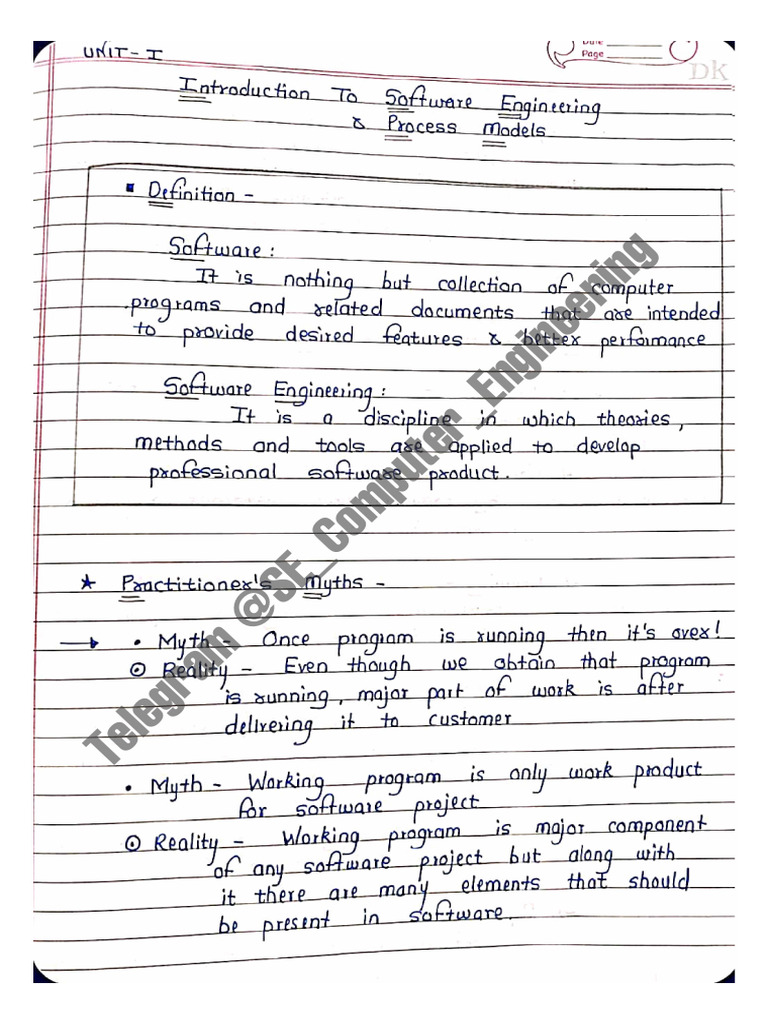 UNIT - I
Date
Page
DK
Introduction To Software Engineering
& Process Models
▪ Definition -
Software :
It is nothing but collection of computer
programs and related documents that are intended
to provide desired features & better performance
Software Engineering :
It is a discipline in which theories,
methods and tools are applied to develop
professional software product.
★ Practitioner's Myths -
→ • Myth - Once program is running then it's over!
⊙ Reality - Even though we obtain that program
is running, major part of work is after
delivering it to customer
• Myth - Working program is only work product
for software project
⊙ Reality - Working program is major component
of any software project but along with
it there are many elements that should
be present in software.
Telegram @SE_Computer_Engineering